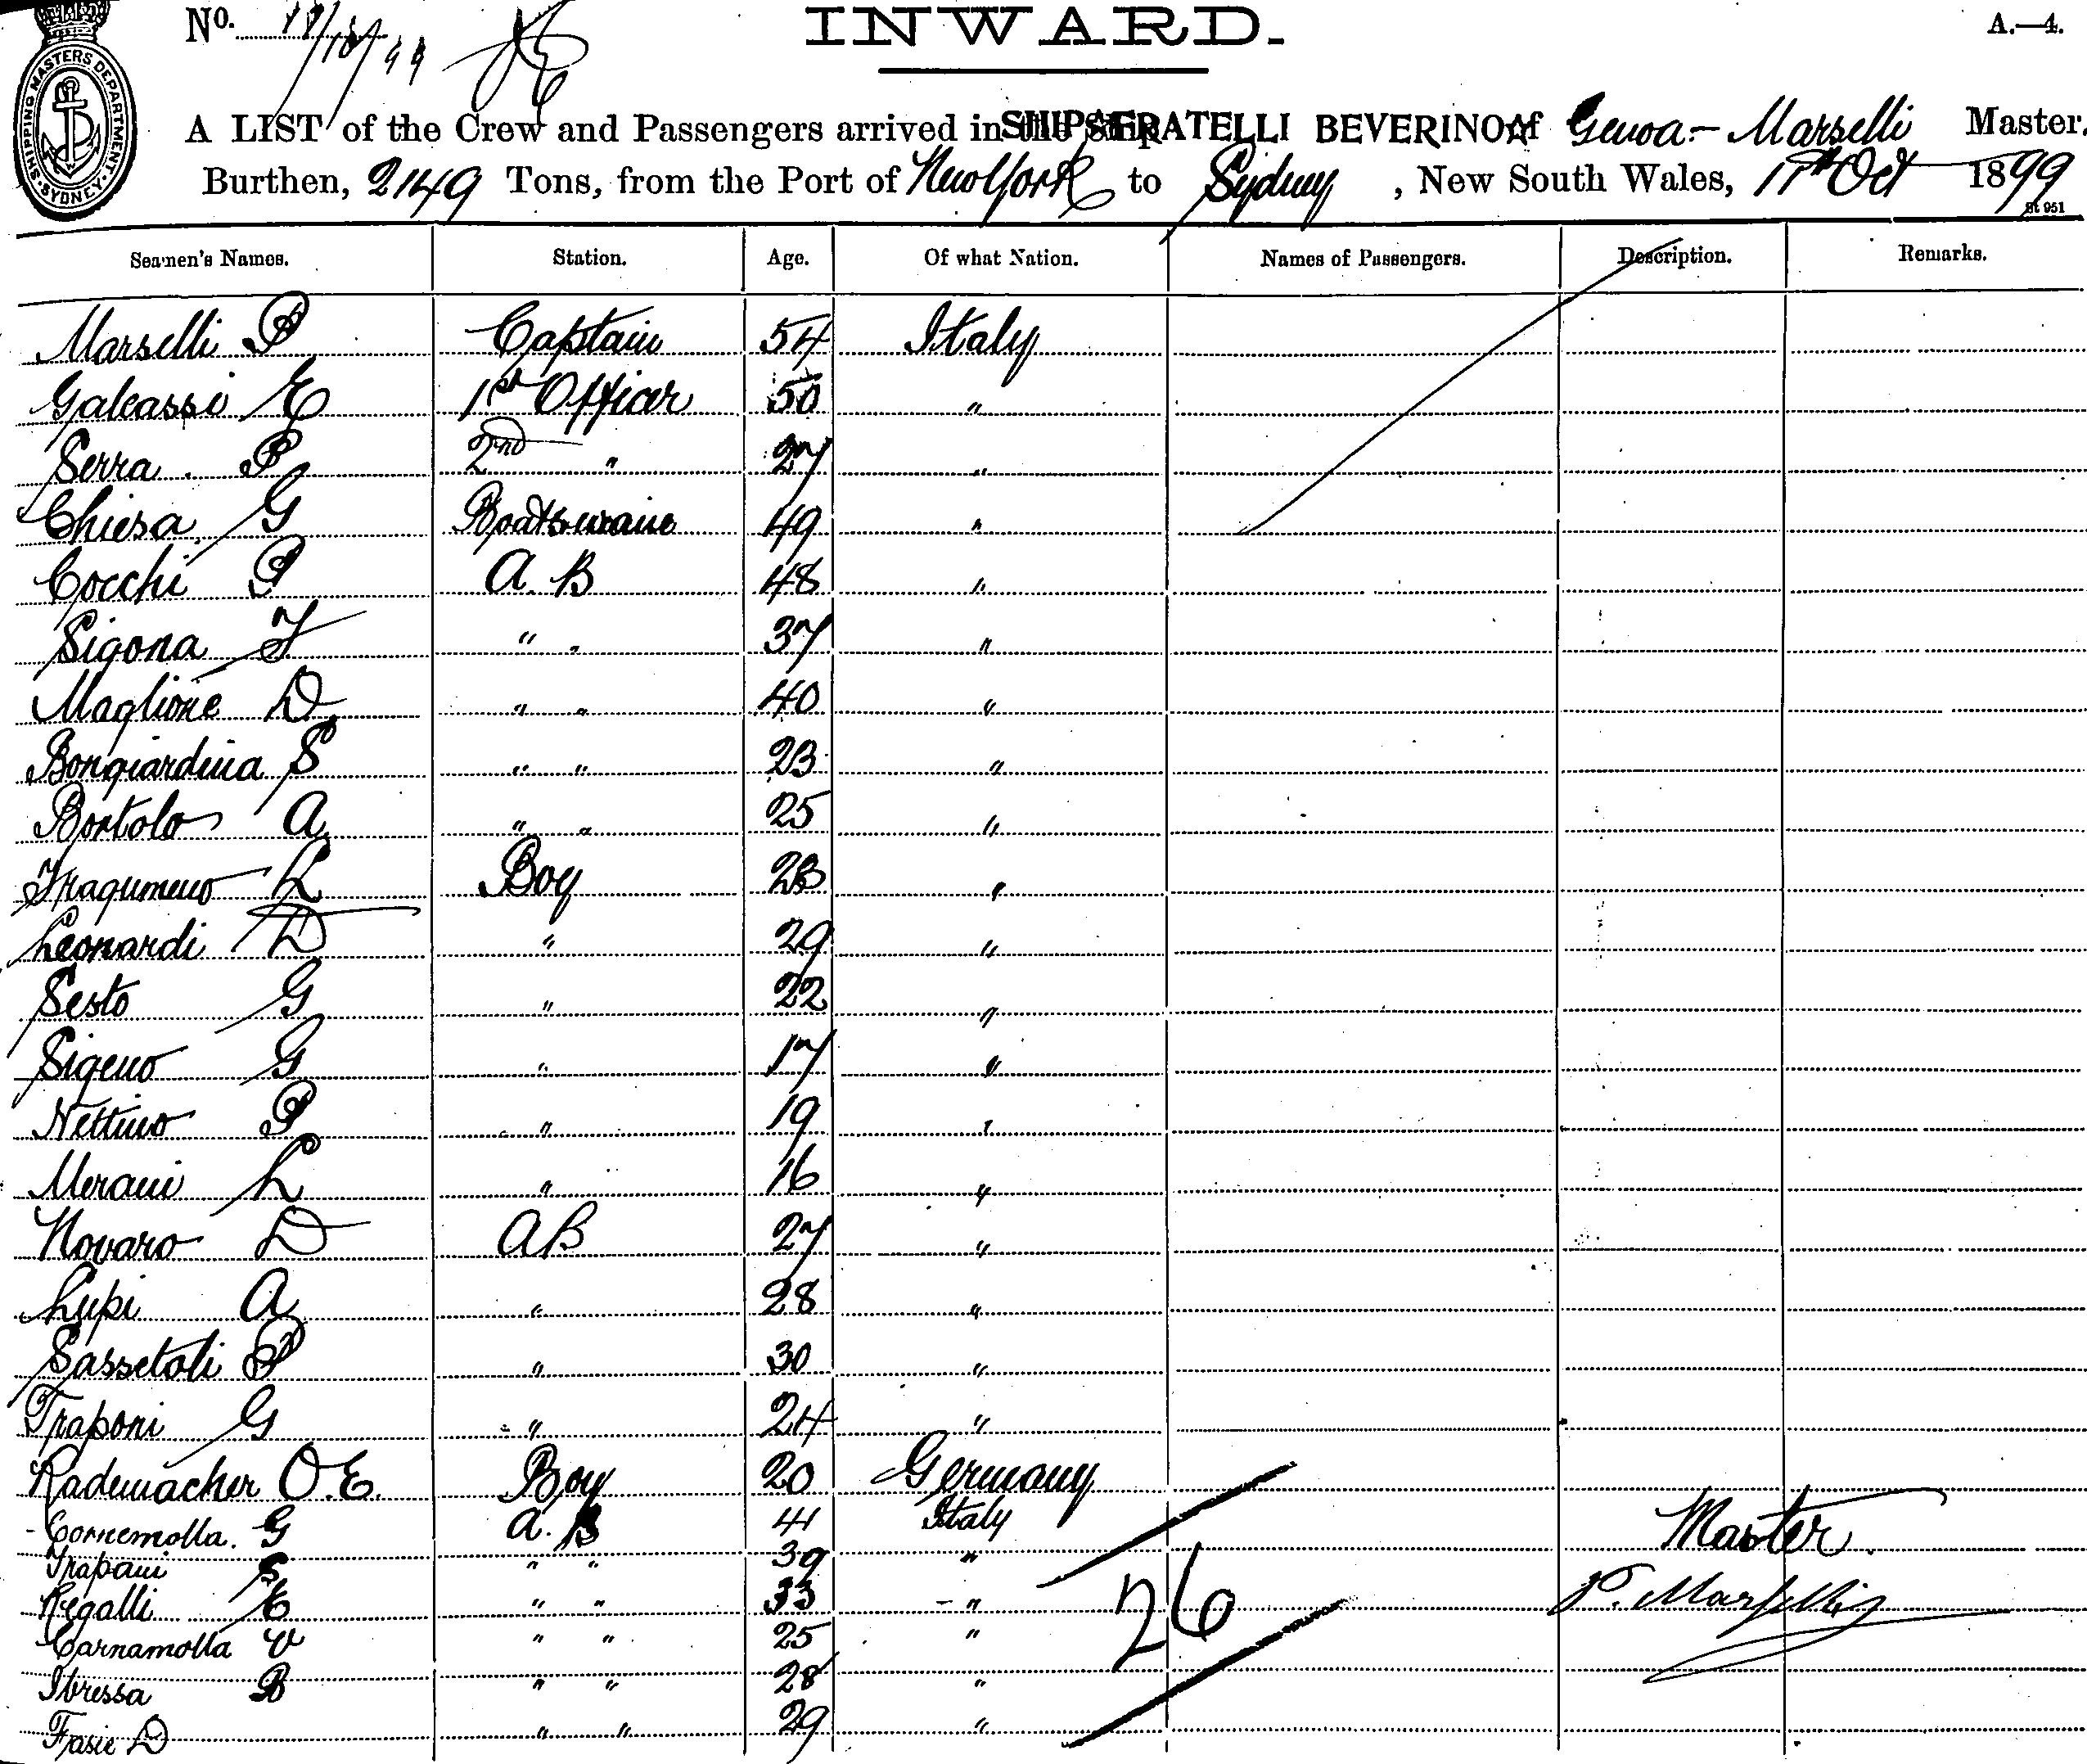 No. 17/10/99
INWARD.
A.—4.
SHIPPING MASTERS DEPARTMENT. SYDNEY.
A LIST of the Crew and Passengers arrived in the Ship SHIP FRATELLI BEVERINO of Genoa:— Marselli Master,
Burthen, 2149 Tons, from the Port of New York to Sydney, New South Wales, 17th Oct 1899
St 951
Seamen's Names. Station. Age. Of what Nation. Names of Passengers. Description. Remarks.
Marselli P Captain 54 Italy
Galeassi E 1st Officer 50 "
Serra. P 2nd " 27 "
Chiesa. G Boatswain 49 "
Cocchi P A. B 48 "
Sigona F " " 37 "
Maglione D " " 40 "
Bongiardina S " " 23 "
Bortolo A " " 25 "
L Boy 23 "
Leonardi D " 29 "
Sesto G " 22 "
Sigeno G " 17 "
Nettuno P " 19 "
Merani L " 16 "
Novaro D AB 27 "
Lupi A " 28 "
Sassetoli P " 30 "
Traponi G " 24 "
Rademacher O.E. Boy 20 Germany
Cornemolla. G A. B 41 Italy
Trapani S " " 39 "
Regalli E " " 33 "
Carnamolla V " " 25 "
Ibressa B " " 28 "
Frasie D " " 29 "
26
Master.
P. Marselli